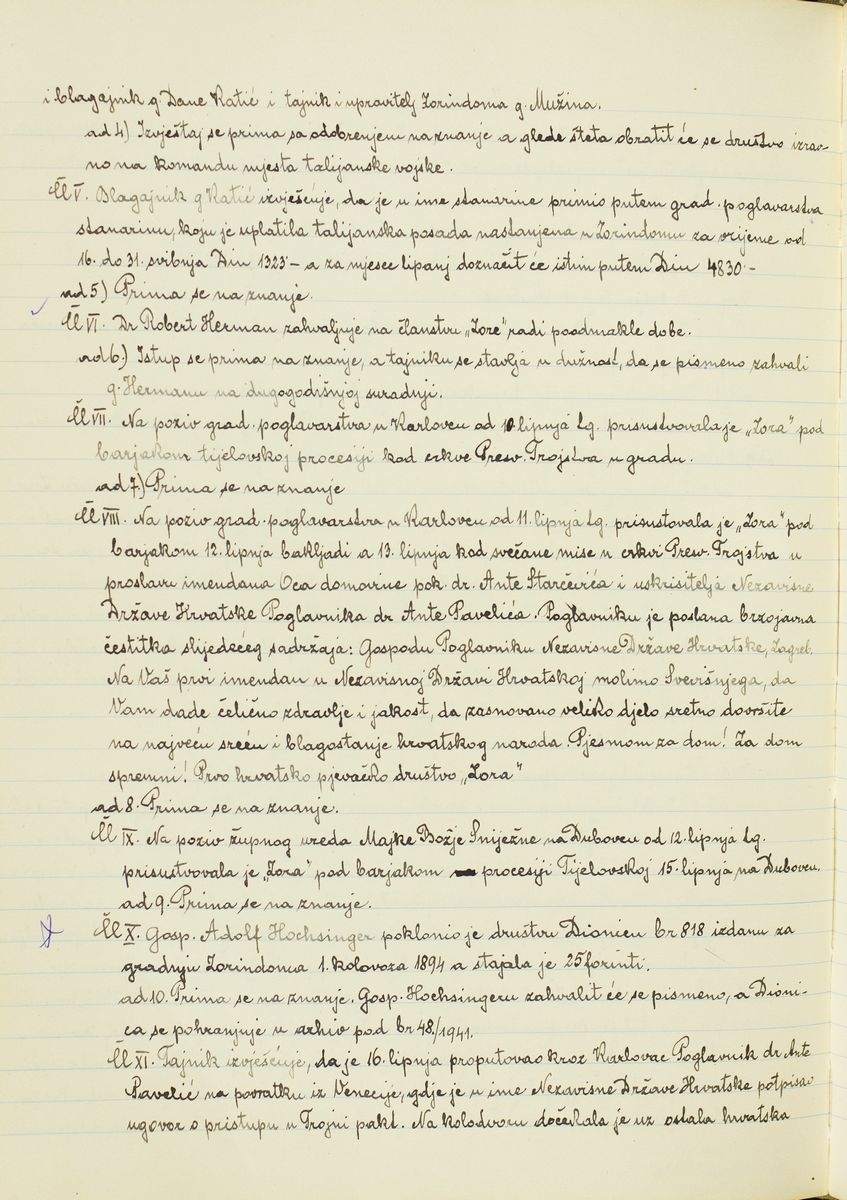 i blagajnik g. Dane Katić i tajnik i upravitelj Zorindoma g. Mužina.
ad 4) Izvještaj se prima sa odobrenjem na znanje a glede šteta obratit će se društvo izrav-
no na komandu mjesta talijanske vojske.
Čl V. Blagajnik g Katić izvješćuje, da je u ime stanarine primio putem grad. poglavarstva
stanarinu, koju je uplatila talijanska posada nastanjena u Zorindomu za vrijeme od
16. do 31. svibnja Din 1323·– a za mjesec lipanj doznačit će istim putem Din 4830·–
ad 5) Prima se na znanje.
Čl VI. Dr Robert Herman zahvaljuje na članstvu „Zore" radi poodmakle dobe.
ad 6.) Istup se prima na znanje, a tajniku se stavlja u dužnost, da se pismeno zahvali
g. Hermanu na dugogodišnjoj suradnji.
Čl VII. Na poziv grad. poglavarstva u Karlovcu od 10. lipnja t.g. prisustvovala je „Zora" pod
barjakom tijelovskoj procesiji kod crkve Presv. Trojstva u gradu.
ad 7.) Prima se na znanje
Čl VIII. Na poziv grad. poglavarstva u Karlovcu od 11. lipnja t.g. prisustovala je „Zora" pod
barjakom 12. lipnja bakljadi a 13. lipnja kod svečane mise u crkvi Presv. Trojstva u
proslavu imendana Oca domovine pok. dr. Ante Starčevića i uskrisitelja Nezavisne
Države Hrvatske Poglavnika dr Ante Pavelića. Poglavniku je poslana brzojavna
čestitka slijedećeg sadržaja: Gospodu Poglavniku Nezavisne Države Hrvatske, Zagreb.
Na Vaš prvi imendan u Nezavisnoj Državi Hrvatskoj molimo Svevišnjega, da
Vam dade čelično zdravlje i jakost, da zasnovano veliko djelo sretno dovršite
na najveću sreću i blagostanje hrvatskog naroda. Pjesmom za dom! Za dom
spremni! Prvo hrvatsko pjevačko društvo „Zora"
ad 8. Prima se na znanje.
Čl IX. Na poziv župnog ureda Majke Božje Sniježne na Dubovcu od 12. lipnja t.g.
prisustvovala je „Zora" pod barjakom procesiji Tijelovskoj 15. lipnja na Dubovcu.
ad 9. Prima se na znanje.
Čl X. Gosp. Adolf Hochsinger poklonio je društvu Dionicu br 818 izdanu za
gradnju Zorindoma 1. kolovoza 1894 a stajala je 25 forinti.
ad 10. Prima se na znanje. Gosp. Hochsingeru zahvalit će se pismeno, a Dioni-
ca se pohranjuje u arhiv pod br 48./1941.
Čl XI. Tajnik izvješćuje, da je 16. lipnja proputovao kroz Karlovac Poglavnik dr. Ante
Pavelić na povratku iz Venecije, gdje je u ime Nezavisne Države Hrvatske potpisao
ugovor o pristupu u Trojni pakt. Na kolodvoru dočekala je uz ostala hrvatska